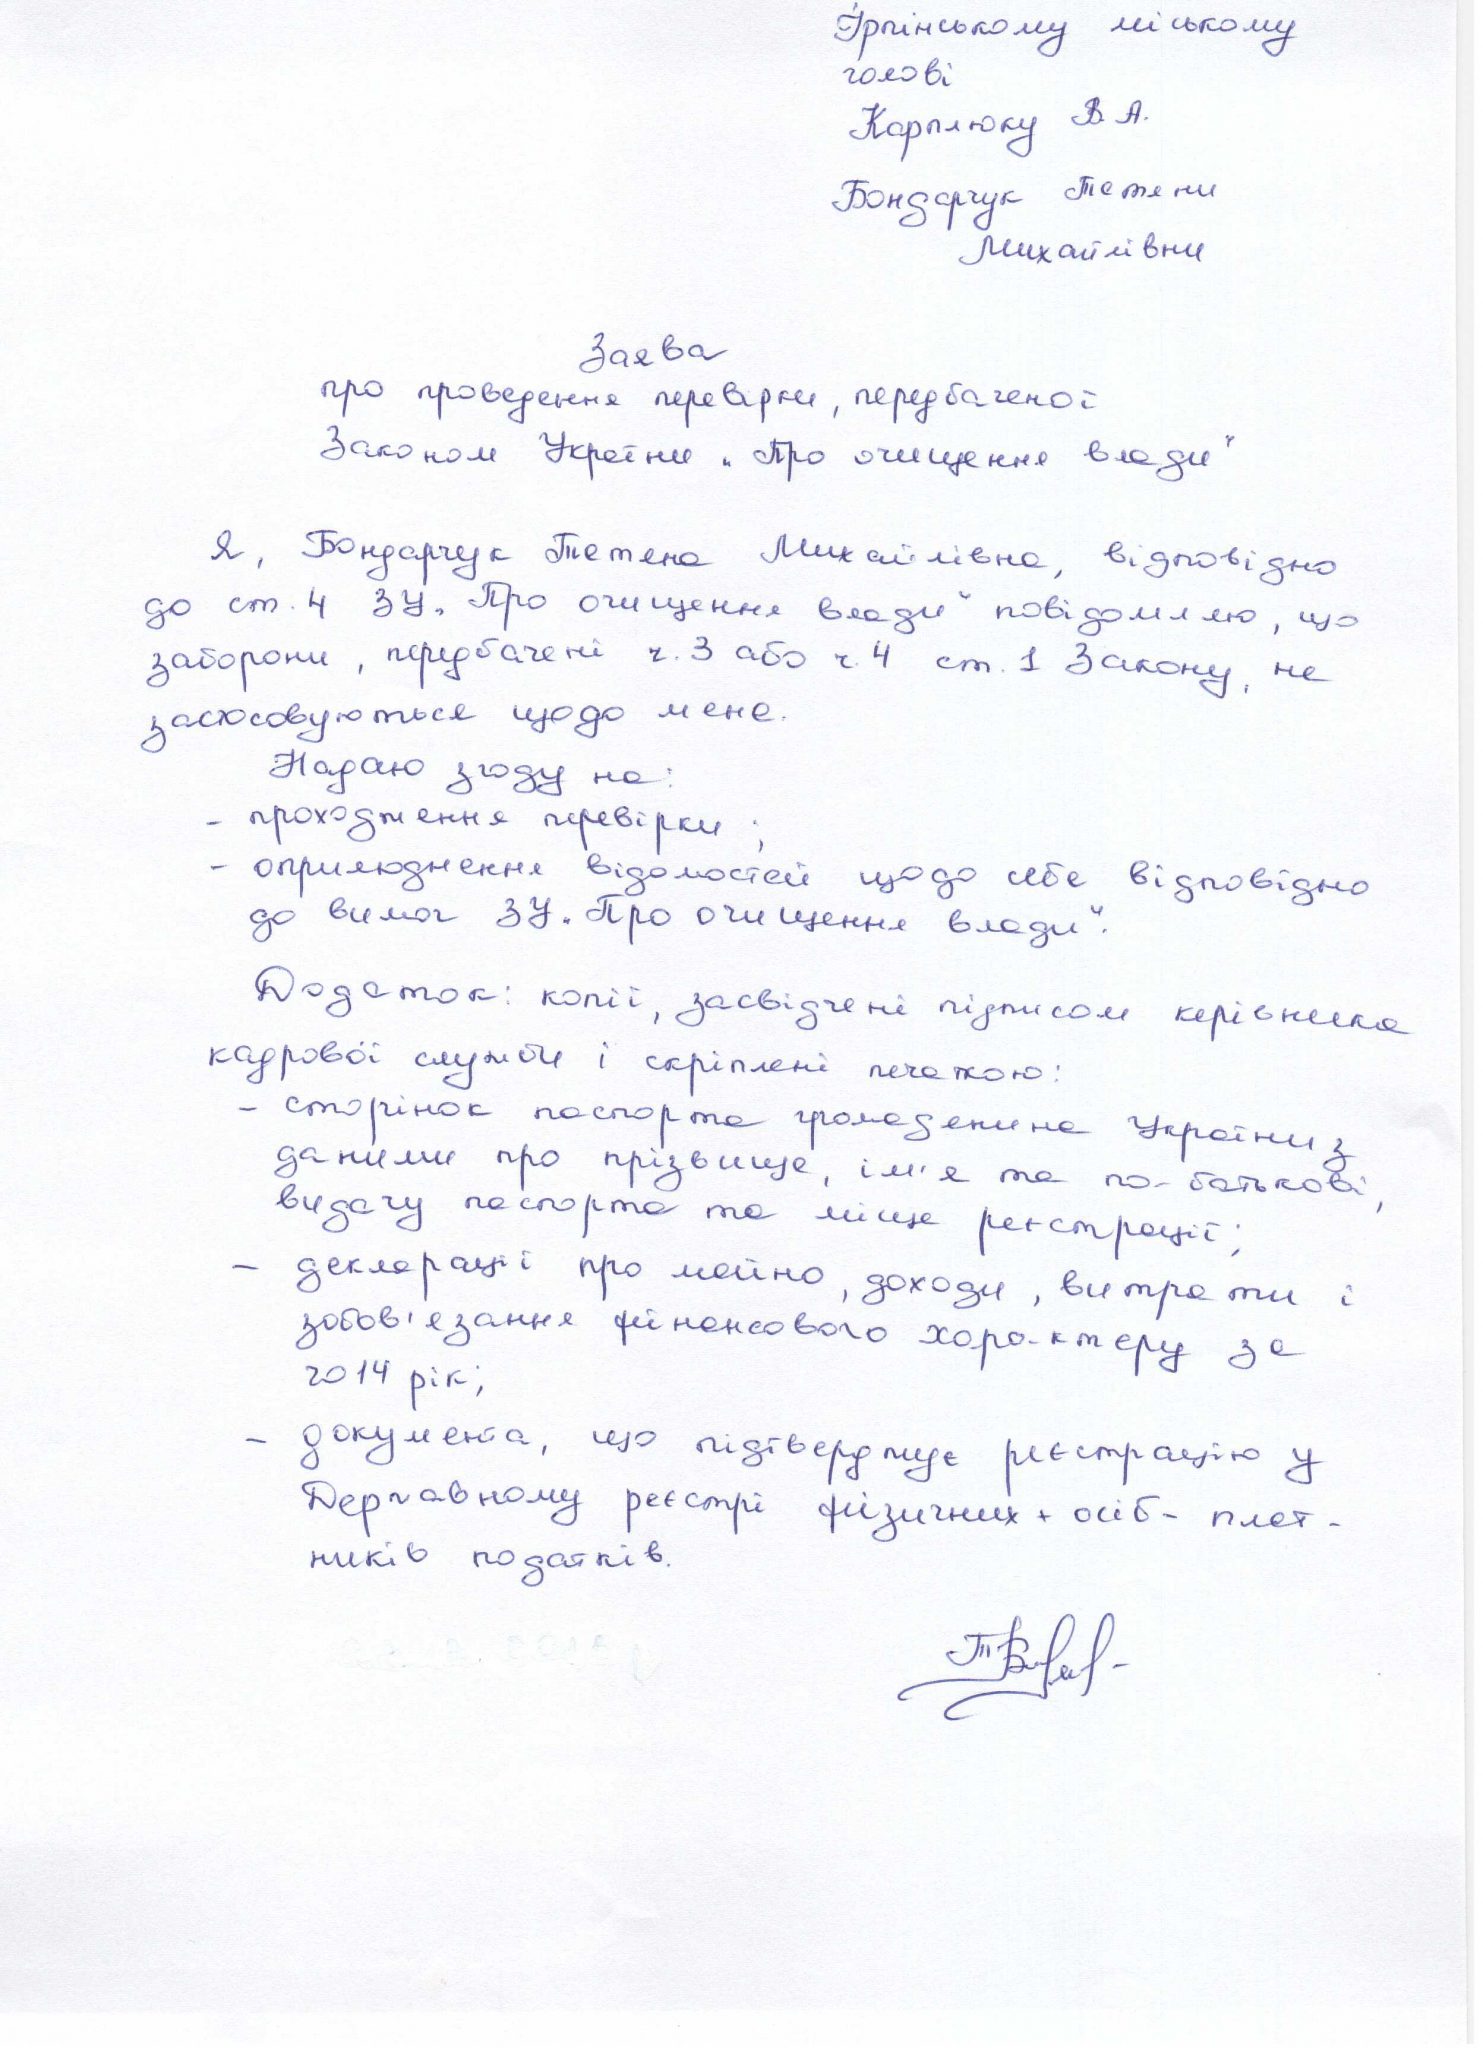 Ірпінському міському
голові
Карплюку В.А.
Бондарчук Тетяни
Михайлівни
Заява
про проведення перевірки, передбаченої
Законом України „Про очищення влади"
Я, Бондарчук Тетяна Михайлівна, відповідно
до ст. 4 ЗУ „Про очищення влади" повідомляю, що
заборони, передбачені ч. 3 або ч. 4 ст. 1 Закону, не
застосовуються щодо мене.
Надаю згоду на:
- проходження перевірки;
- оприлюднення відомостей щодо себе відповідно
до вимог ЗУ „Про очищення влади".
Додаток: копії, засвідчені підписом керівника
кадрової служби і скріплені печаткою:
- сторінок паспорта громадянина України з
даними про прізвище, ім'я та по-батькові,
видачу паспорта та місце реєстрації;
- декларації про майно, доходи, витрати і
зобов'язання фінансового характеру за
2014 рік;
- документа, що підтверджує реєстрацію у
Державному реєстрі фізичних осіб - плат-
ників податків.